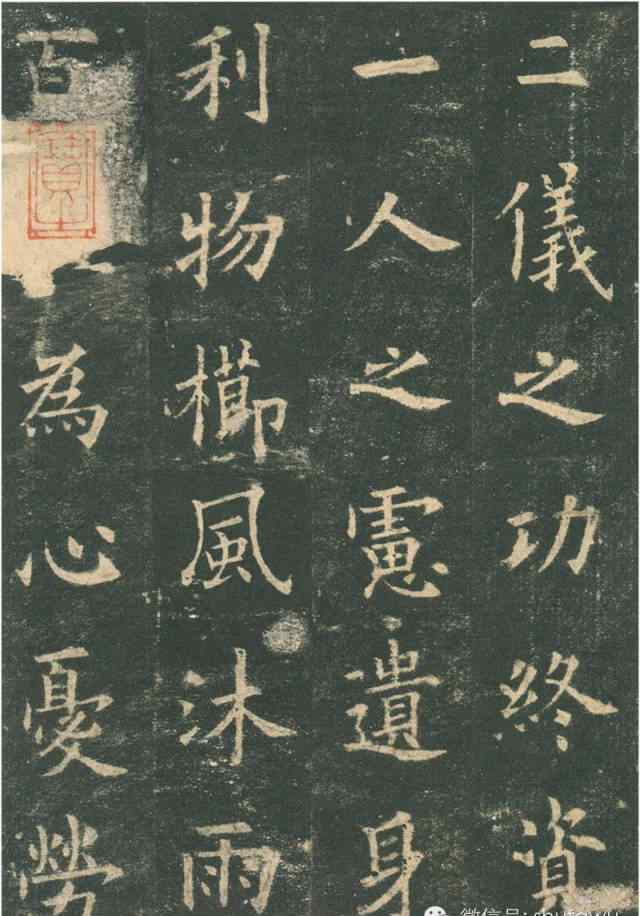 二儀之功終資
一人之慮遺身
利物櫛風沐雨
百為心憂勞
微信号: